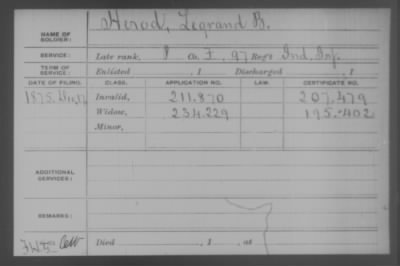 NAME OF SOLDIER: Herod, Legrand B.
SERVICE: Late rank, P Co. F, 97 Reg't Ind. Inf.
TERM OF SERVICE: Enlisted , 1 Discharged , 1
DATE OF FILING. CLASS. APPLICATION NO. LAW. CERTIFICATE NO.
1875, Invalid, 211.870 207.479
Widow, 234.229 195.402
Minor,
ADDITIONAL SERVICES:
REMARKS:
Died , 1 , at